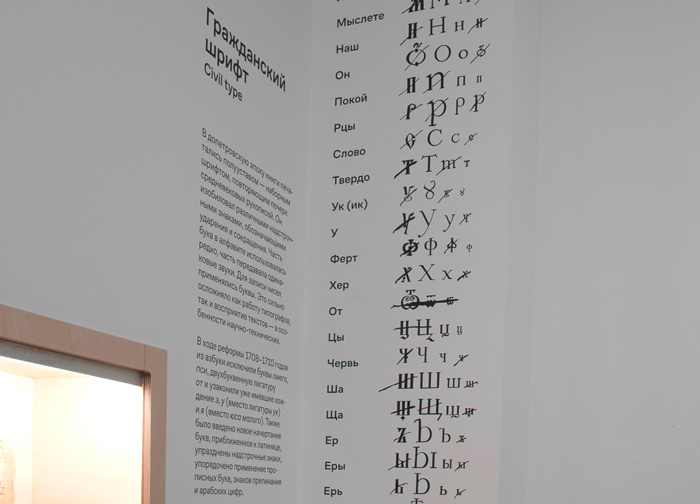 Гражданский
шрифт
Civil type
В допетровскую эпоху книги печа-
тались полууставом — наборным
шрифтом, повторяющим почерк
средневековых рукописей. Он
изобиловал различными надстроч-
ными знаками, обозначающими
ударения и сокращения. Часть
букв в алфавите использовалась
редко, часть передавала одина-
ковые звуки. Для записи чисел
применялись буквы. Это сильно
осложняло как работу типографов,
так и восприятие текстов — в осо-
бенности научно-технических.
В ходе реформы 1708–1710 годов
из азбуки исключили буквы омега,
пси, двухбуквенную лигатуру
от и узаконили уже имевшие хож-
дение э, у (вместо лигатуры ук)
и я (вместо юса малого). Также
было введено новое начертание
букв, приближенное к латинице,
упразднены надстрочные знаки,
упорядочено применение про-
писных букв, знаков препинания
и арабских цифр.
Мыслете
Наш Н Н н н
Он О О о о
Покой П П п п
Рцы Р Р р р
Слово С С с с
Твердо Т Т т т
Ук (ик)
У У У у у
Ферт Ф Ф ф ф
Хер Х Х х х
От
Цы Ц Ц ц ц
Червь Ч Ч ч ч
Ша Ш Ш ш ш
Ща Щ Щ щ щ
Ер Ъ Ъ ъ ъ
Еры Ы Ы ы ы
Ерь Ь Ь ь ь